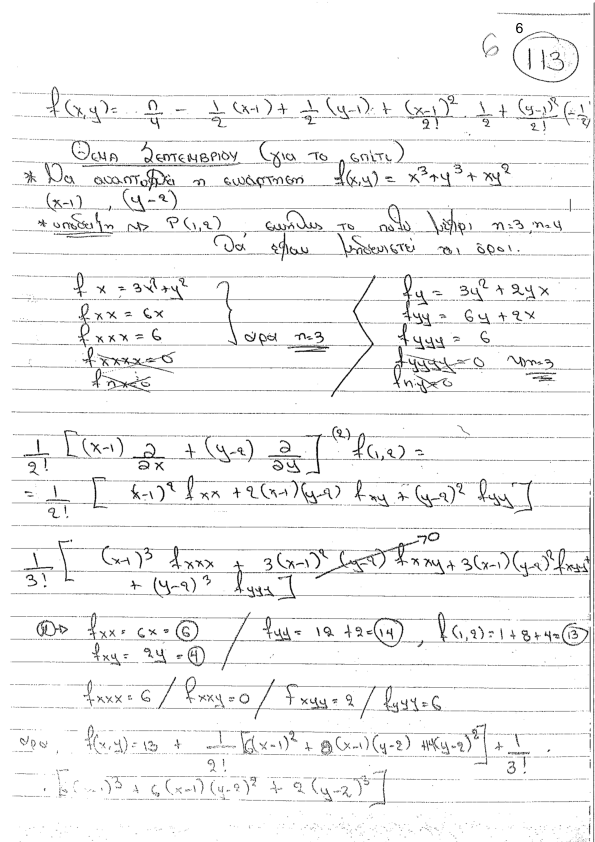 6
6 113
f(x,y) = π/4 - 1/2 (x-1) + 1/2 (y-1) + (x-1)²/2! · 1/2 + (y-1)²/2! (-1/2)
Θεμα Σεπτεμβριου (για το σπίτι)
* Να αναπτυχθεί η συνάρτηση f(x,y) = x³+y³+xy²
(x-1), (y-2)
* υποδειξη ~> P(1,2), συνήθως το πολύ μέχρι n=3, n=4
θα έχουν μηδενιστεί οι όροι.
fx = 3x²+y² fy = 3y² + 2yx
fxx = 6x fyy = 6y + 2x
fxxx = 6 } αρα n=3 fyyy = 6
fxxxx = 0 fyyyy = 0 n=3
fnx=0 fny=0
1/2! [(x-1) ∂/∂x + (y-2) ∂/∂y]⁽²⁾ f(1,2) =
= 1/2! [(x-1)² fxx + 2(x-1)(y-2) fxy + (y-2)² fyy]
1/3! [(x-1)³ fxxx + 3(x-1)² (y-2) fxxy →0 + 3(x-1)(y-2)² fxyy +
+ (y-2)³ fyyy]
fxx = 6x = 6 / fyy = 12 + 2 = 14, f(1,2) = 1+8+4 = 13
fxy = 2y = 4
fxxx = 6 / fxxy = 0 / fxyy = 2 / fyyy = 6
αρα, f(x,y) = 13 + 1/2! [6(x-1)² + 8(x-1)(y-2) + 14(y-2)²] + 1/3! ·
· [ )³ + 6(x-1)(y-2)² + 2(y-2)³]